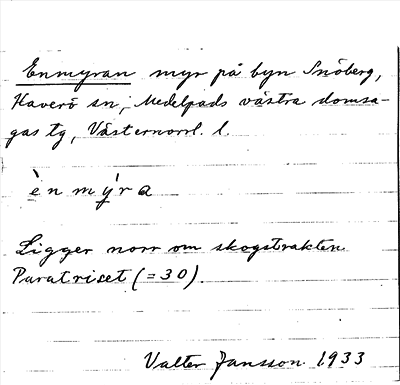 Enmyran myr på byn Snöberg,
Haverö sn, Medelpads västra domsa-
gas tg, Västernorrl. l.
è n m ý r a
Ligger norr om skogstrakten
Paratriset (= 30).
Valter Jansson 1933